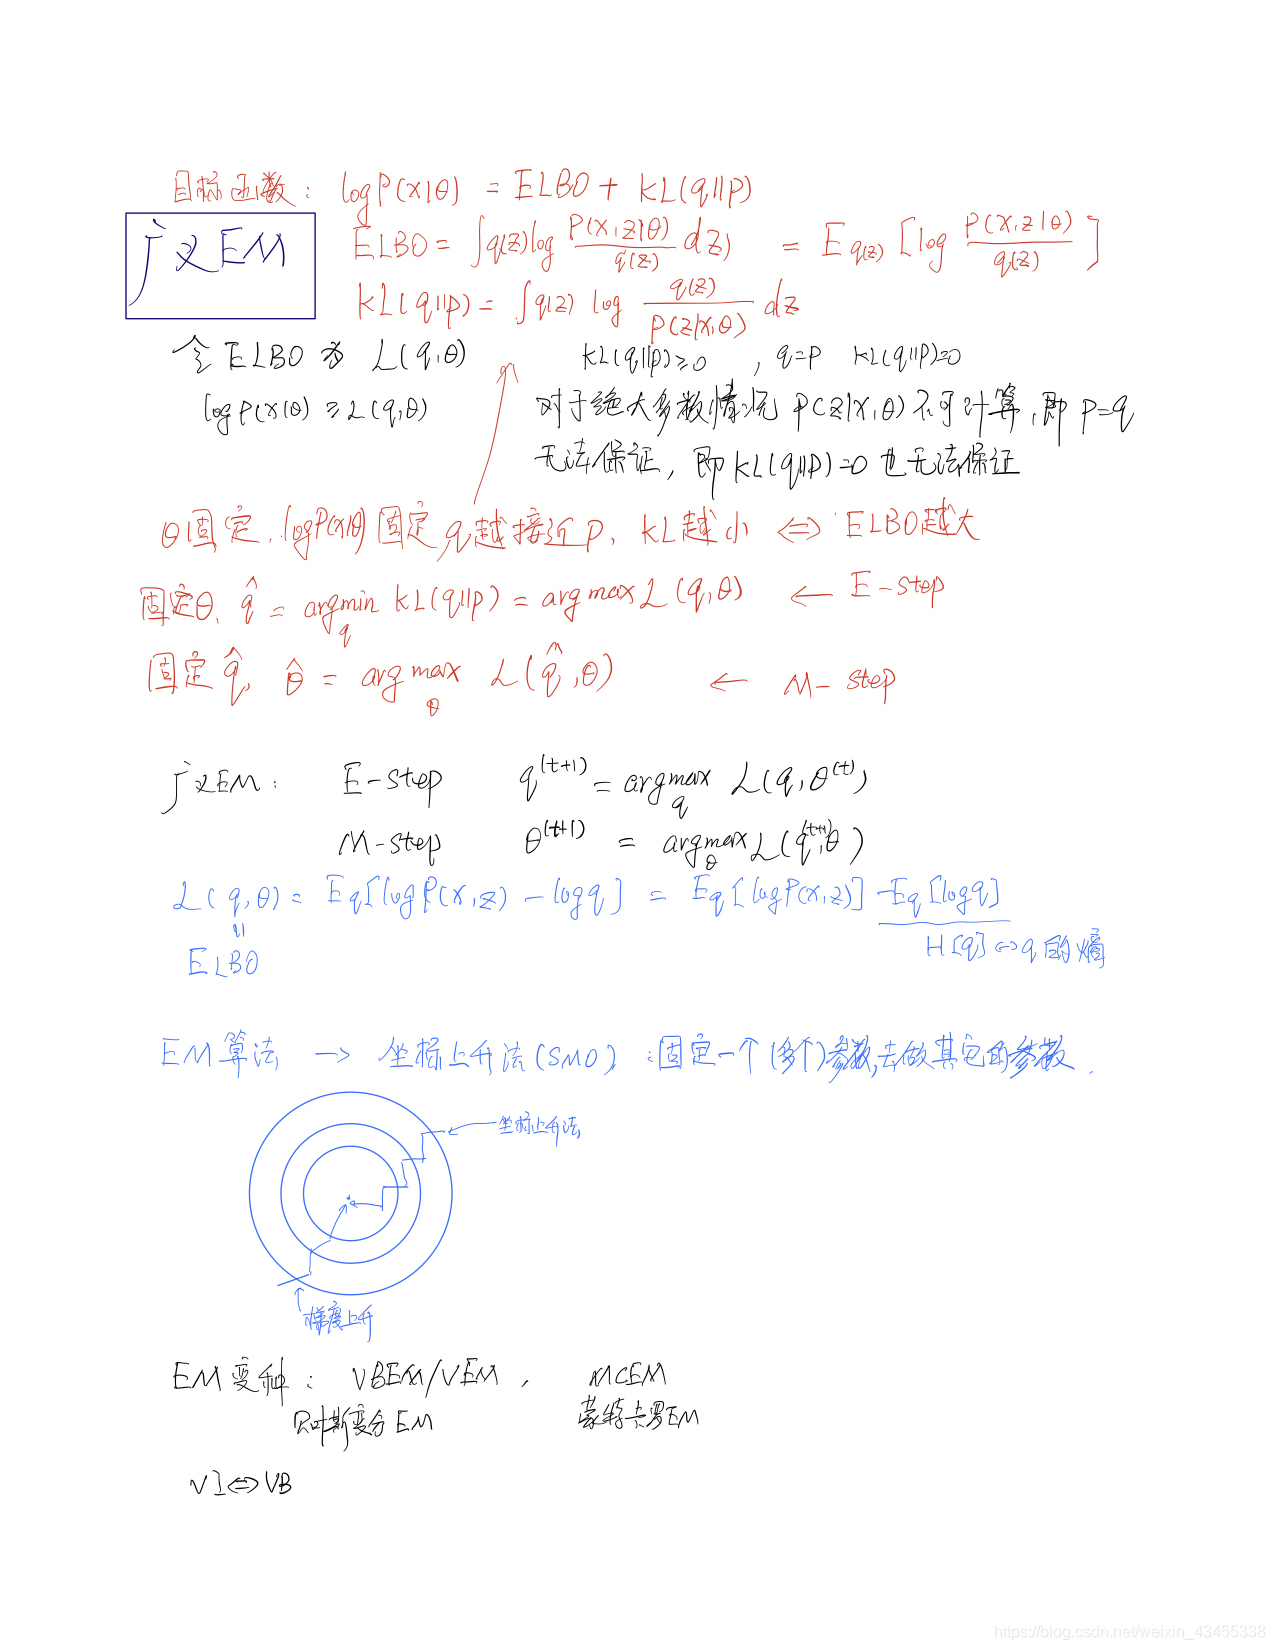 目标函数: log P(x|θ) = ELBO + KL(q||p)
广义EM
ELBO = ∫q(z) log P(x,z|θ)/q(z) dz) = E q(z) [log P(x,z|θ)/q(z)]
KL(q||p) = ∫q(z) log q(z)/P(z|x,θ) dz
令 ELBO 为 L(q,θ)
KL(q||p)≥0 , q=p KL(q||p)=0
log P(x|θ) ≥ L(q,θ)
对于绝大多数情况 P(z|x,θ)不可计算,即 P=q
无法保证, 即 KL(q||p)=0 也无法保证
θ固定, log P(x|θ) 固定, q越接近p, KL越小 ⟺ ELBO越大
固定θ, q̂ = argmin_q KL(q||p) = arg max L(q,θ) ← E-step
固定q̂, θ̂ = arg max_θ L(q̂,θ) ← M-step
广义EM: E-step q^(t+1) = argmax_q L(q,θ^(t))
M-step θ^(t+1) = argmax_θ L(q^(t+1),θ)
L(q,θ) = Eq[log P(x,z) - log q] = Eq[log P(x,z)] -Eq[log q]
=
ELBO
H[q] ⟺ q的熵
EM算法 → 坐标上升法(SMO) :固定一个(多个)参数,去做其它的参数.
坐标上升法
梯度上升
EM变种: VBEM/VEM , MCEM
贝叶斯变分EM 蒙特卡罗EM
VI⟺VB
https://blog.csdn.net/weixin_43455338